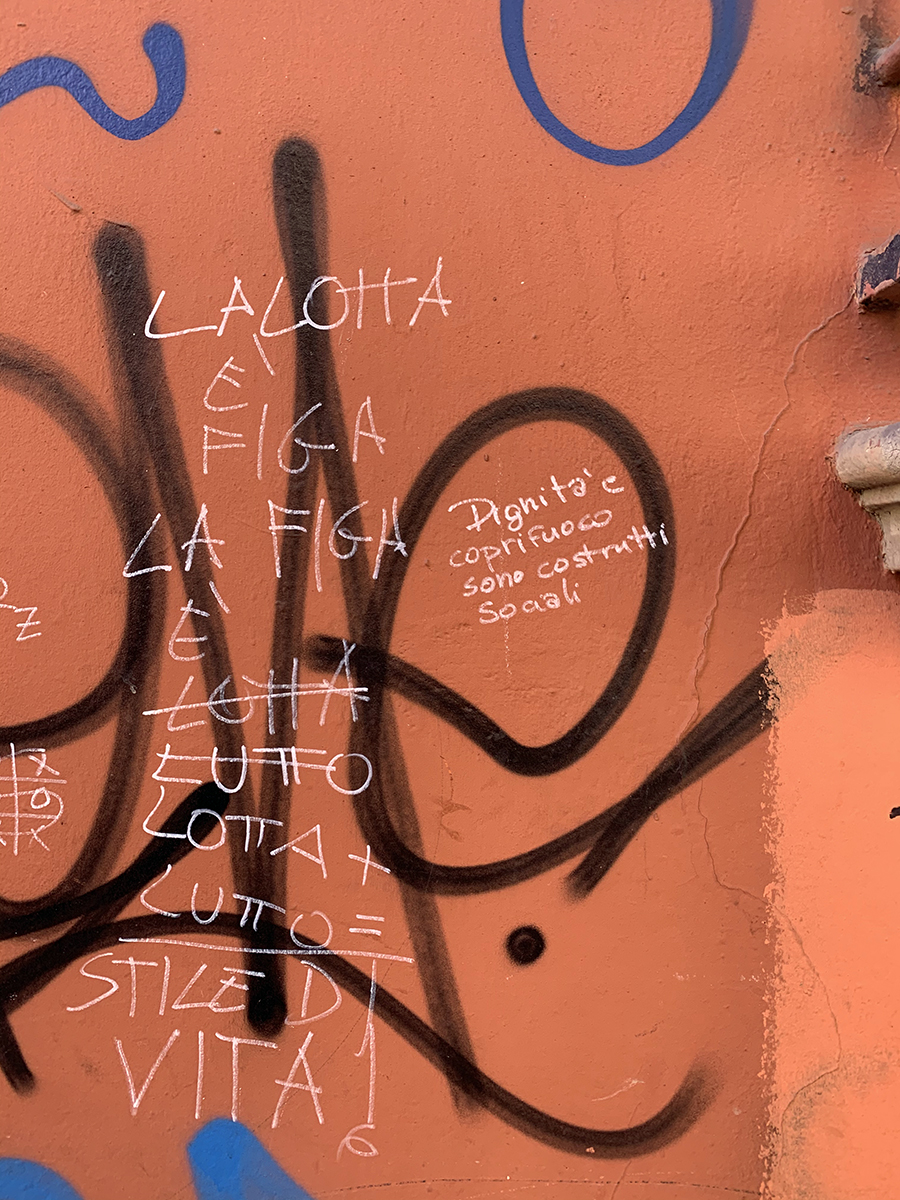 LA LOTTA
È
FIGA
LA FIGA
È
LOTTA
LUTTO
LOTTA +
LUTTO =
STILE DI
VITA!
Dignita' e
coprifuoco
sono costrutti
sociali
z
x
9
x